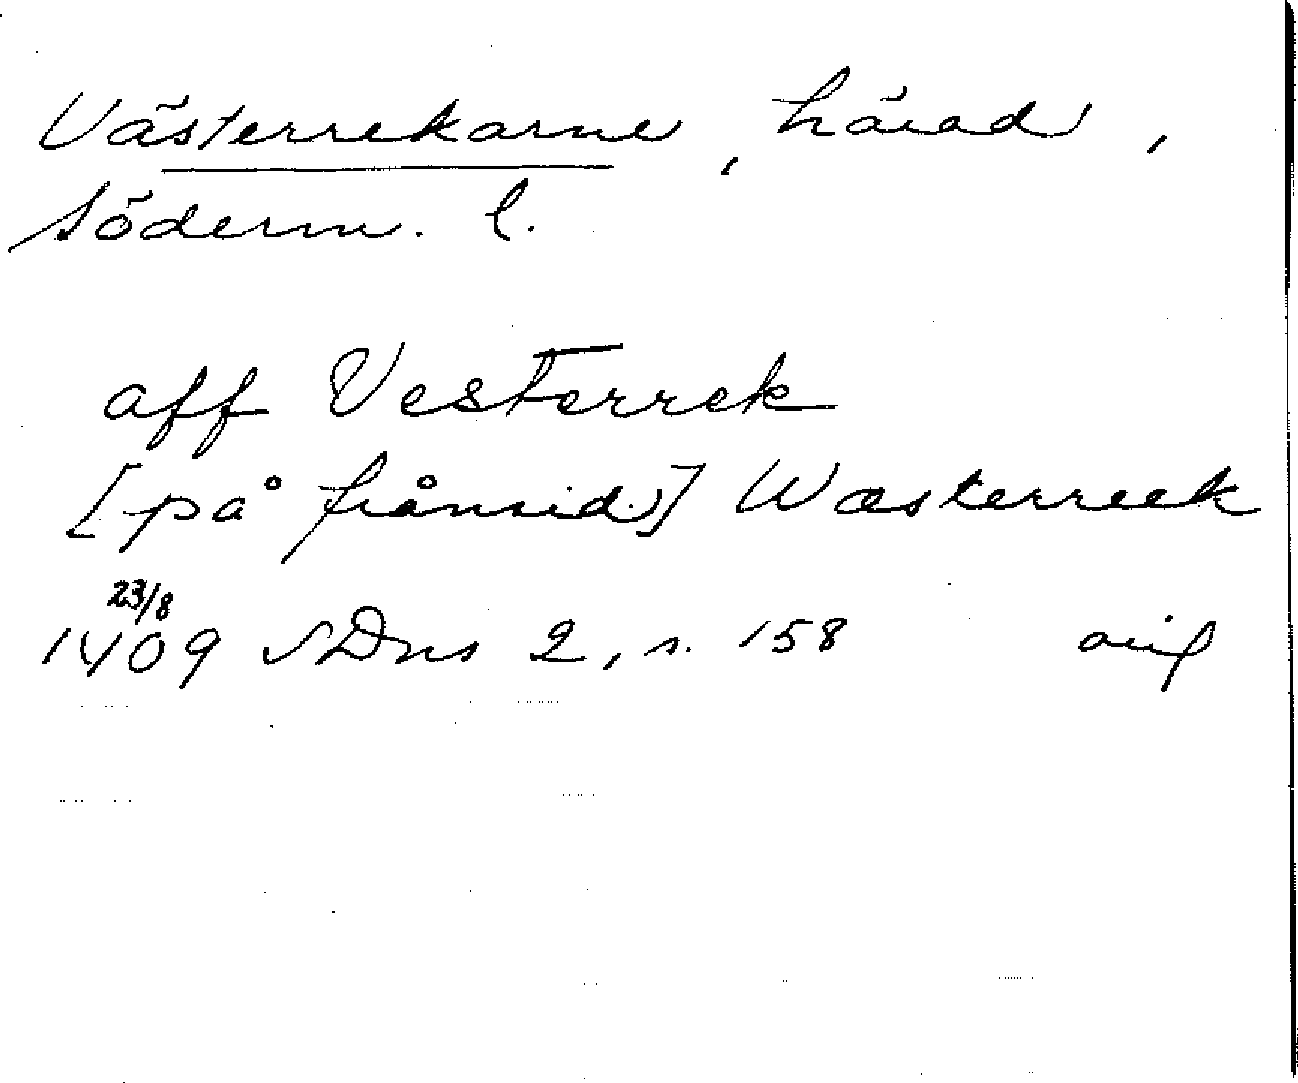 Västerrekarne, härad,
Söderm. l.
aff Vesterrek
[på frånsid.] Wæsterreek
23/8
1409 SDns 2, s. 158 orig